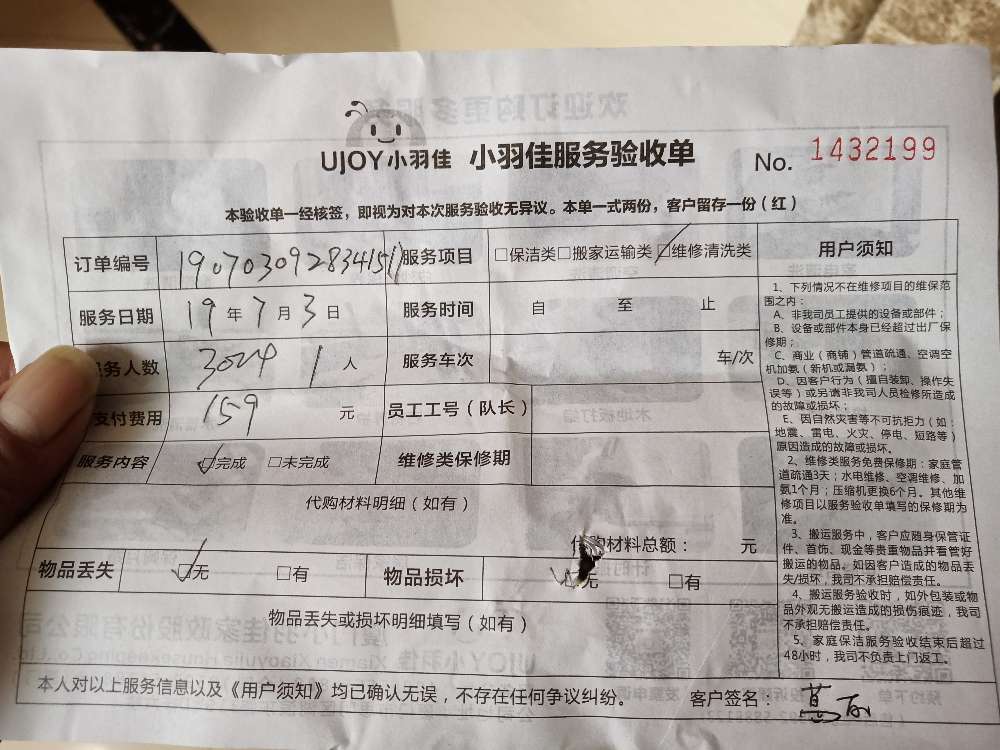 UJOY小羽佳 小羽佳服务验收单 No. 1432199
本验收单一经核签，即视为对本次服务验收无异议。本单一式两份，客户留存一份（红）
订单编号 服务项目 □保洁类□搬家运输类□维修清洗类
服务日期 19年7月3日 服务时间 自 至 止
务人数 1人 服务车次 车/次
支付费用 159 元 员工工号（队长）
服务内容 □完成 □未完成 维修类保修期
代购材料明细（如有）
代购材料总额： 元
物品丢失 □无 □有 物品损坏 □无 □有
物品丢失或损坏明细填写（如有）
本人对以上服务信息以及《用户须知》均已确认无误，不存在任何争议纠纷。 客户签名：
用户须知
1、下列情况不在维修项目的维保范
围之内：
A、非我司员工提供的设备或部件；
B、设备或部件本身已经超过出厂保
修期；
C、商业（商铺）管道疏通、空调空
机加氨（新机或漏氨）；
D、因客户行为（擅自装卸、操作失
误等）或另请非我司人员检修所造成
的故障或损坏；
E、因自然灾害等不可抗拒力（如：
地震、雷电、火灾、停电、短路等）
原因造成的故障或损坏。
2、维修类服务免费保修期：家庭管
道疏通3天；水电维修、空调维修、加
氨1个月；压缩机更换6个月。其他维
修项目以服务验收单填写的保修期为
准。
3、搬运服务中，客户应随身保管证
件、首饰、现金等贵重物品并看管好
搬运的物品。如因客户造成的物品丢
失/损坏，我司不承担赔偿责任。
4、搬运服务验收时，如外包装或物
品外观无搬运造成的损伤痕迹，我司
不承担赔偿责任。
5、家庭保洁服务验收结束后超过
48小时，我司不负责上门返工。